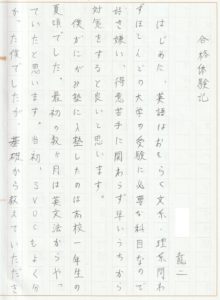 合格体験記
龍二
はじめた、英語はおそらく文系・理系問わ
ずほとんどの大学の受験に必要な科目なので
好き嫌い、得意苦手に関わらず早いうちから
対策をすると良いと思います。
僕がに入塾したのは高校一年生の
夏頃でした。最初の数ヶ月は英文法からやっ
ていたと思います。当初、SVOCもよく分
かった僕でしたが、基礎から教えていただき